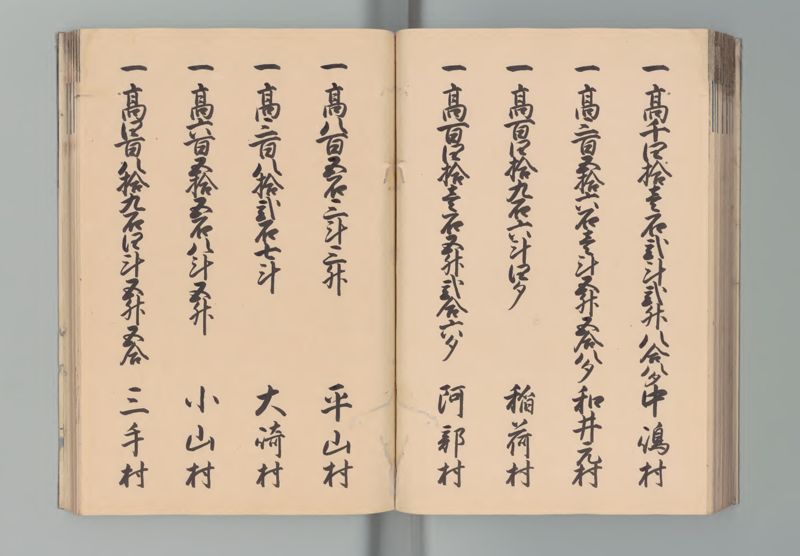 一 高千四拾壱石弐斗弐升八合八夕 中嶋村
一 高二百五拾六石壱斗五升五合八夕 和井元村
一 高百四拾九石六斗四夕 稲荷村
一 高百四拾壱石五升弐合六夕 阿部村
一 高八百五石二斗二升 平山村
一 高二百八拾弐石七斗 大崎村
一 高六百五拾五石八斗五升 小山村
一 高四百八拾九石四斗五升五合 三手村